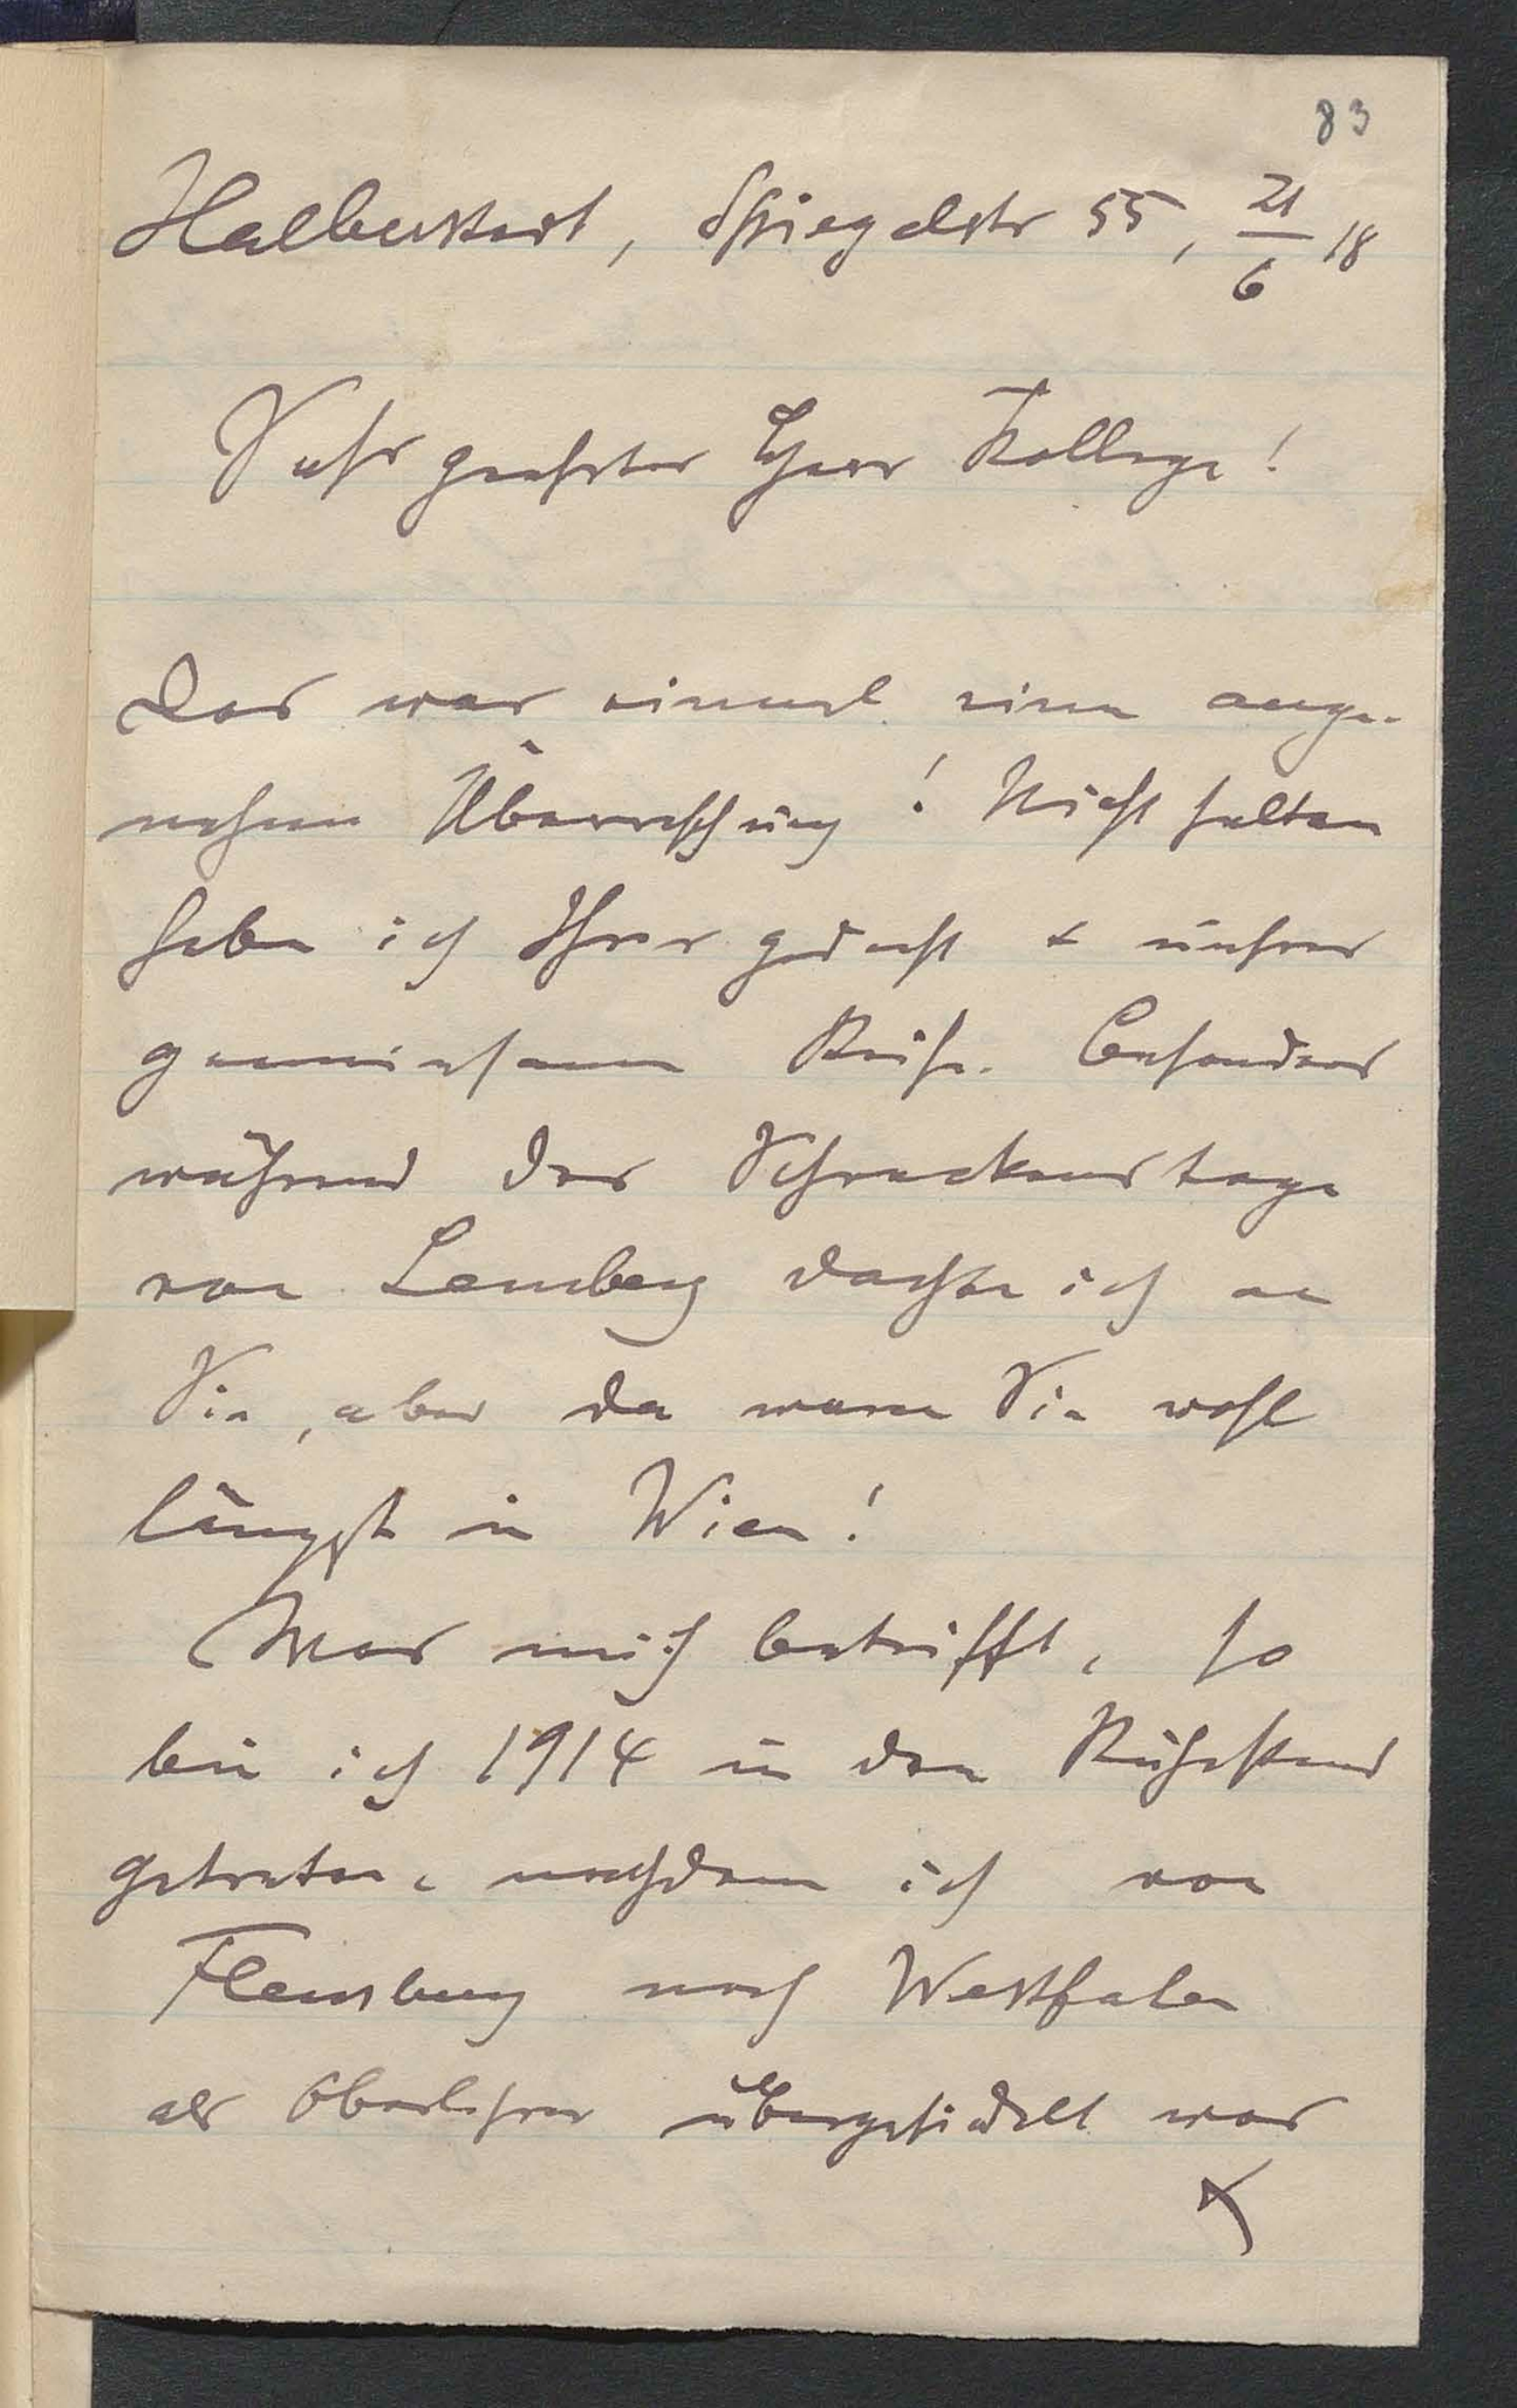 83
Halberstadt, Spiegelstr 55, 21/6 18
Sehr geehrter Herr Kollege!
Das war einmal eine ange-
nehme Überraschung! Nicht selten
habe ich Ihrer gedacht + unsrer
gemeinsamen Reise. Besonders
während der Schreckenstage
von Lemberg dachte ich an
Sie, aber da waren Sie wohl
längst in Wien!
Was mich betrifft, so
bin ich 1914 in den Ruhestand
getreten, nachdem ich von
Flensburg nach Westfalen
als Oberlehrer übergesiedelt war